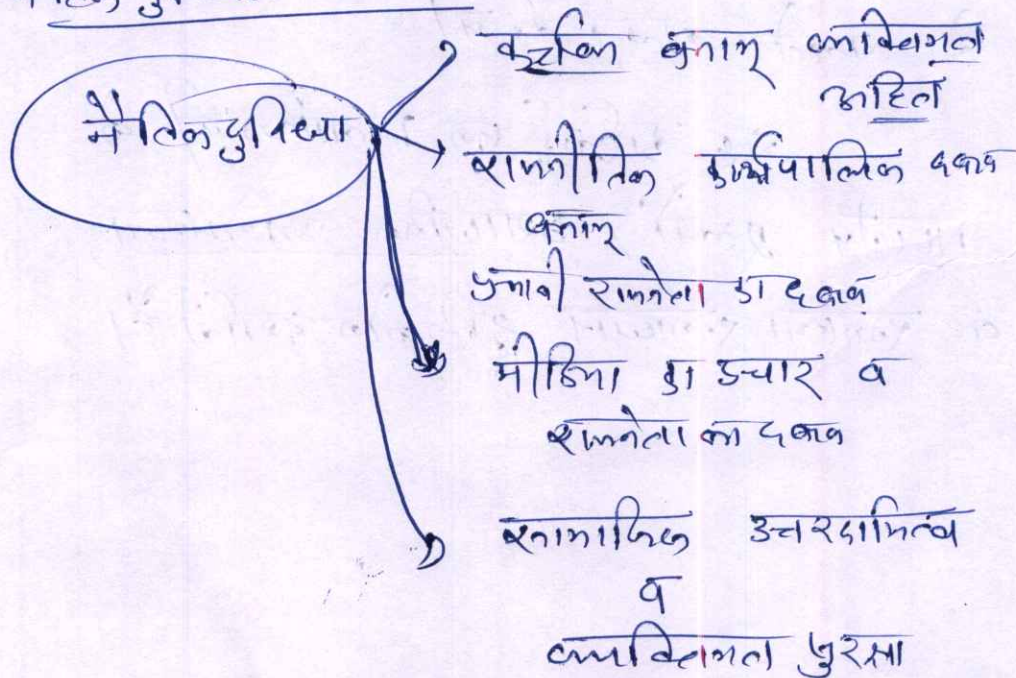 नैतिक दुविधा
कर्तव्य बनाम व्यक्तिगत
अहित
राजनीतिक कार्यपालिक दबाव
बनाम
प्रभावी राजनेता का दबाव
मीडिया का प्रचार व
राजनेता का दबाव
सामाजिक उत्तरदायित्व
व
व्यक्तिगत सुरक्षा